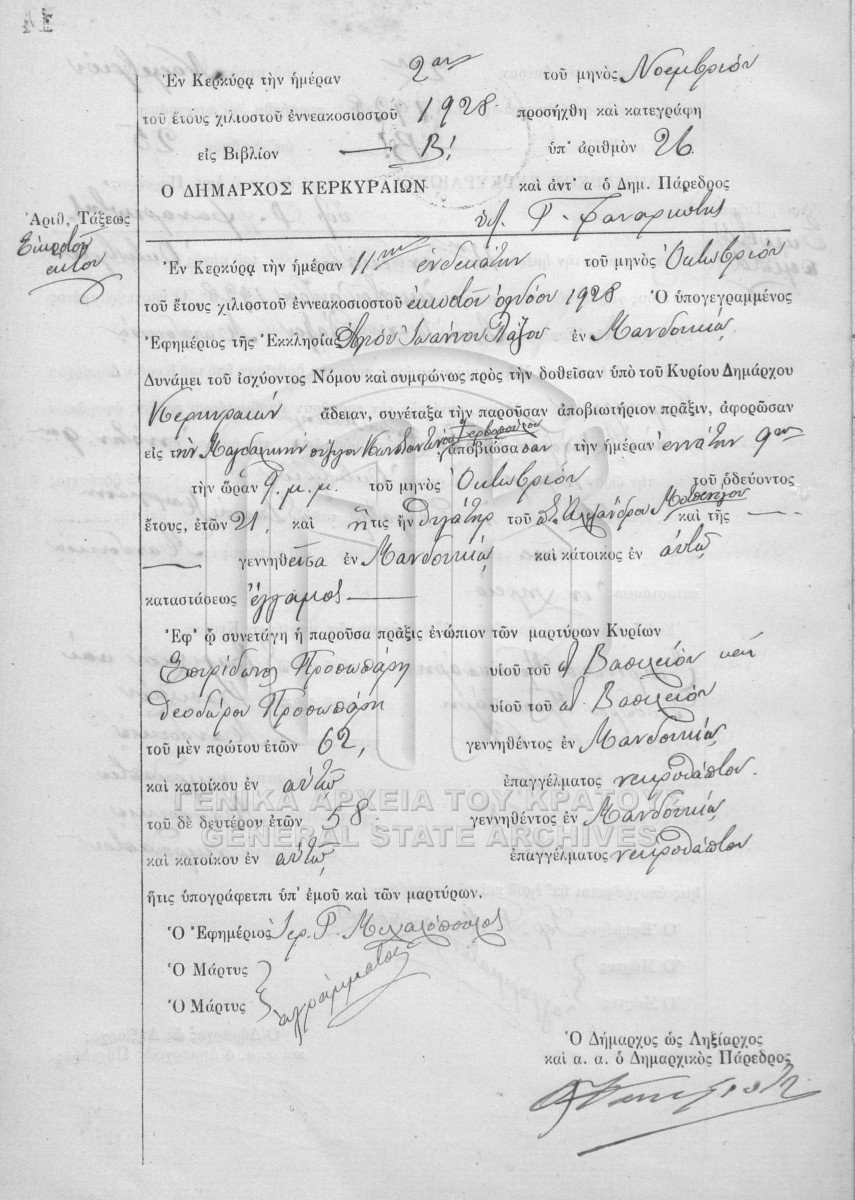 Ἐν Κερκύρᾳ τὴν ἡμέραν 2αν τοῦ μηνὸς Νοεμβρίου
τοῦ ἔτους χιλιοστοῦ ἐννεακοσιοστοῦ 1928 προσήχθη καὶ κατεγράφη
εἰς Βιβλίον Β! ὑπ' ἀριθμὸν 26
Ο ΔΗΜΑΡΧΟΣ ΚΕΡΚΥΡΑΙΩΝ καὶ ἀντ' α ὁ Δημ. Πάρεδρος
Ἀριθ. Τάξεως
Εἰκοστὸν
ἕκτον
Ἐν Κερκύρᾳ τὴν ἡμέραν 11ην ἑνδεκάτην τοῦ μηνὸς Ὀκτωβρίου
τοῦ ἔτους χιλιοστοῦ ἐννεακοσιοστοῦ εἰκοστοῦ ὀγδόου 1928 Ὁ ὑπογεγραμμένος
Ἐφημέριος τῆς Ἐκκλησίας Ἁγίου Ἰωάννου Λάζου ἐν Μανδουκίῳ
Δυνάμει τοῦ ἰσχύοντος Νόμου καὶ συμφώνως πρὸς τὴν δοθεῖσαν ὑπὸ τοῦ Κυρίου Δημάρχου
Κερκυραίων ἄδειαν, συνέταξα τὴν παροῦσαν ἀποβιωτήριον πρᾶξιν, ἀφορῶσαν
εἰς τὴν Μαγδαληνὴν σύζυγον Κωνσταντίνου ἀποβιώσασαν τὴν ἡμέραν ἐννάτην 9ην
τὴν ὥραν 9 μ.μ. τοῦ μηνὸς Ὀκτωβρίου τοῦ ὁδεύοντος
ἔτους, ἐτῶν 21, καὶ ἥτις ἦν θυγάτηρ τοῦ Ἀλεξάνδρου καὶ τῆς
γεννηθεῖσα ἐν Μανδουκίῳ καὶ κάτοικος ἐν αὐτῷ
καταστάσεως ἔγγαμος
Ἐφ' ᾧ συνετάγη ἡ παροῦσα πρᾶξις ἐνώπιον τῶν μαρτύρων Κυρίων
Σπυρίδωνος Προσωπάρη υἱοῦ τοῦ Βασιλείου καὶ
Θεοδώρου Προσωπάρη υἱοῦ τοῦ Βασιλείου
τοῦ μὲν πρώτου ἐτῶν 62, γεννηθέντος ἐν Μανδουκίῳ
καὶ κατοίκου ἐν αὐτῷ ἐπαγγέλματος νεκροθάπτου.
ΓΕΝΙΚΑ ΑΡΧΕΙΑ ΤΟΥ ΚΡΑΤΟΥΣ
τοῦ δὲ δευτέρου ἐτῶν 58 γεννηθέντος ἐν Μανδουκίῳ
GENERAL STATE ARCHIVES
καὶ κατοίκου ἐν αὐτῷ ἐπαγγέλματος νεκροθάπτου
ἥτις ὑπογράφετπι ὑπ' ἐμοῦ καὶ τῶν μαρτύρων.
Ὁ Ἐφημέριος Ἱερ. Γ. Μιχαλόπουλος
Ὁ Μάρτυς
Ὁ Μάρτυς ἀγράμματοι
Ὁ Δήμαρχος ὡς Ληξίαρχος
καὶ α. α. ὁ Δημαρχικὸς Πάρεδρος